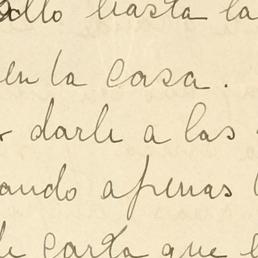 hasta la
en la casa.
darle a las
ando apenas
carta que